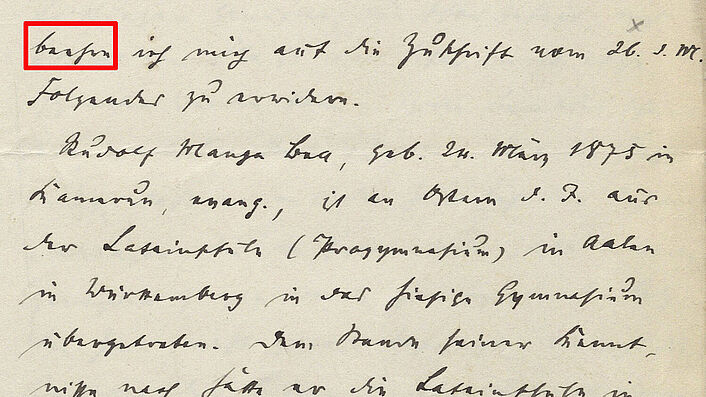 beehre ich mich auf die Zuschrift vom 26. d. M.
Folgendes zu erwidern.
Rudolf Manga Bell, geb. 24. März 1875 in
Kamerun, evang., ist an Ostern d. J. aus
der Lateinschule (Progymnasium) in Aalen
in Württemberg in das hiesige Gymnasium
übergetreten. Dem Stande seiner Kennt-
nisse nach hätte er die Lateinschule in